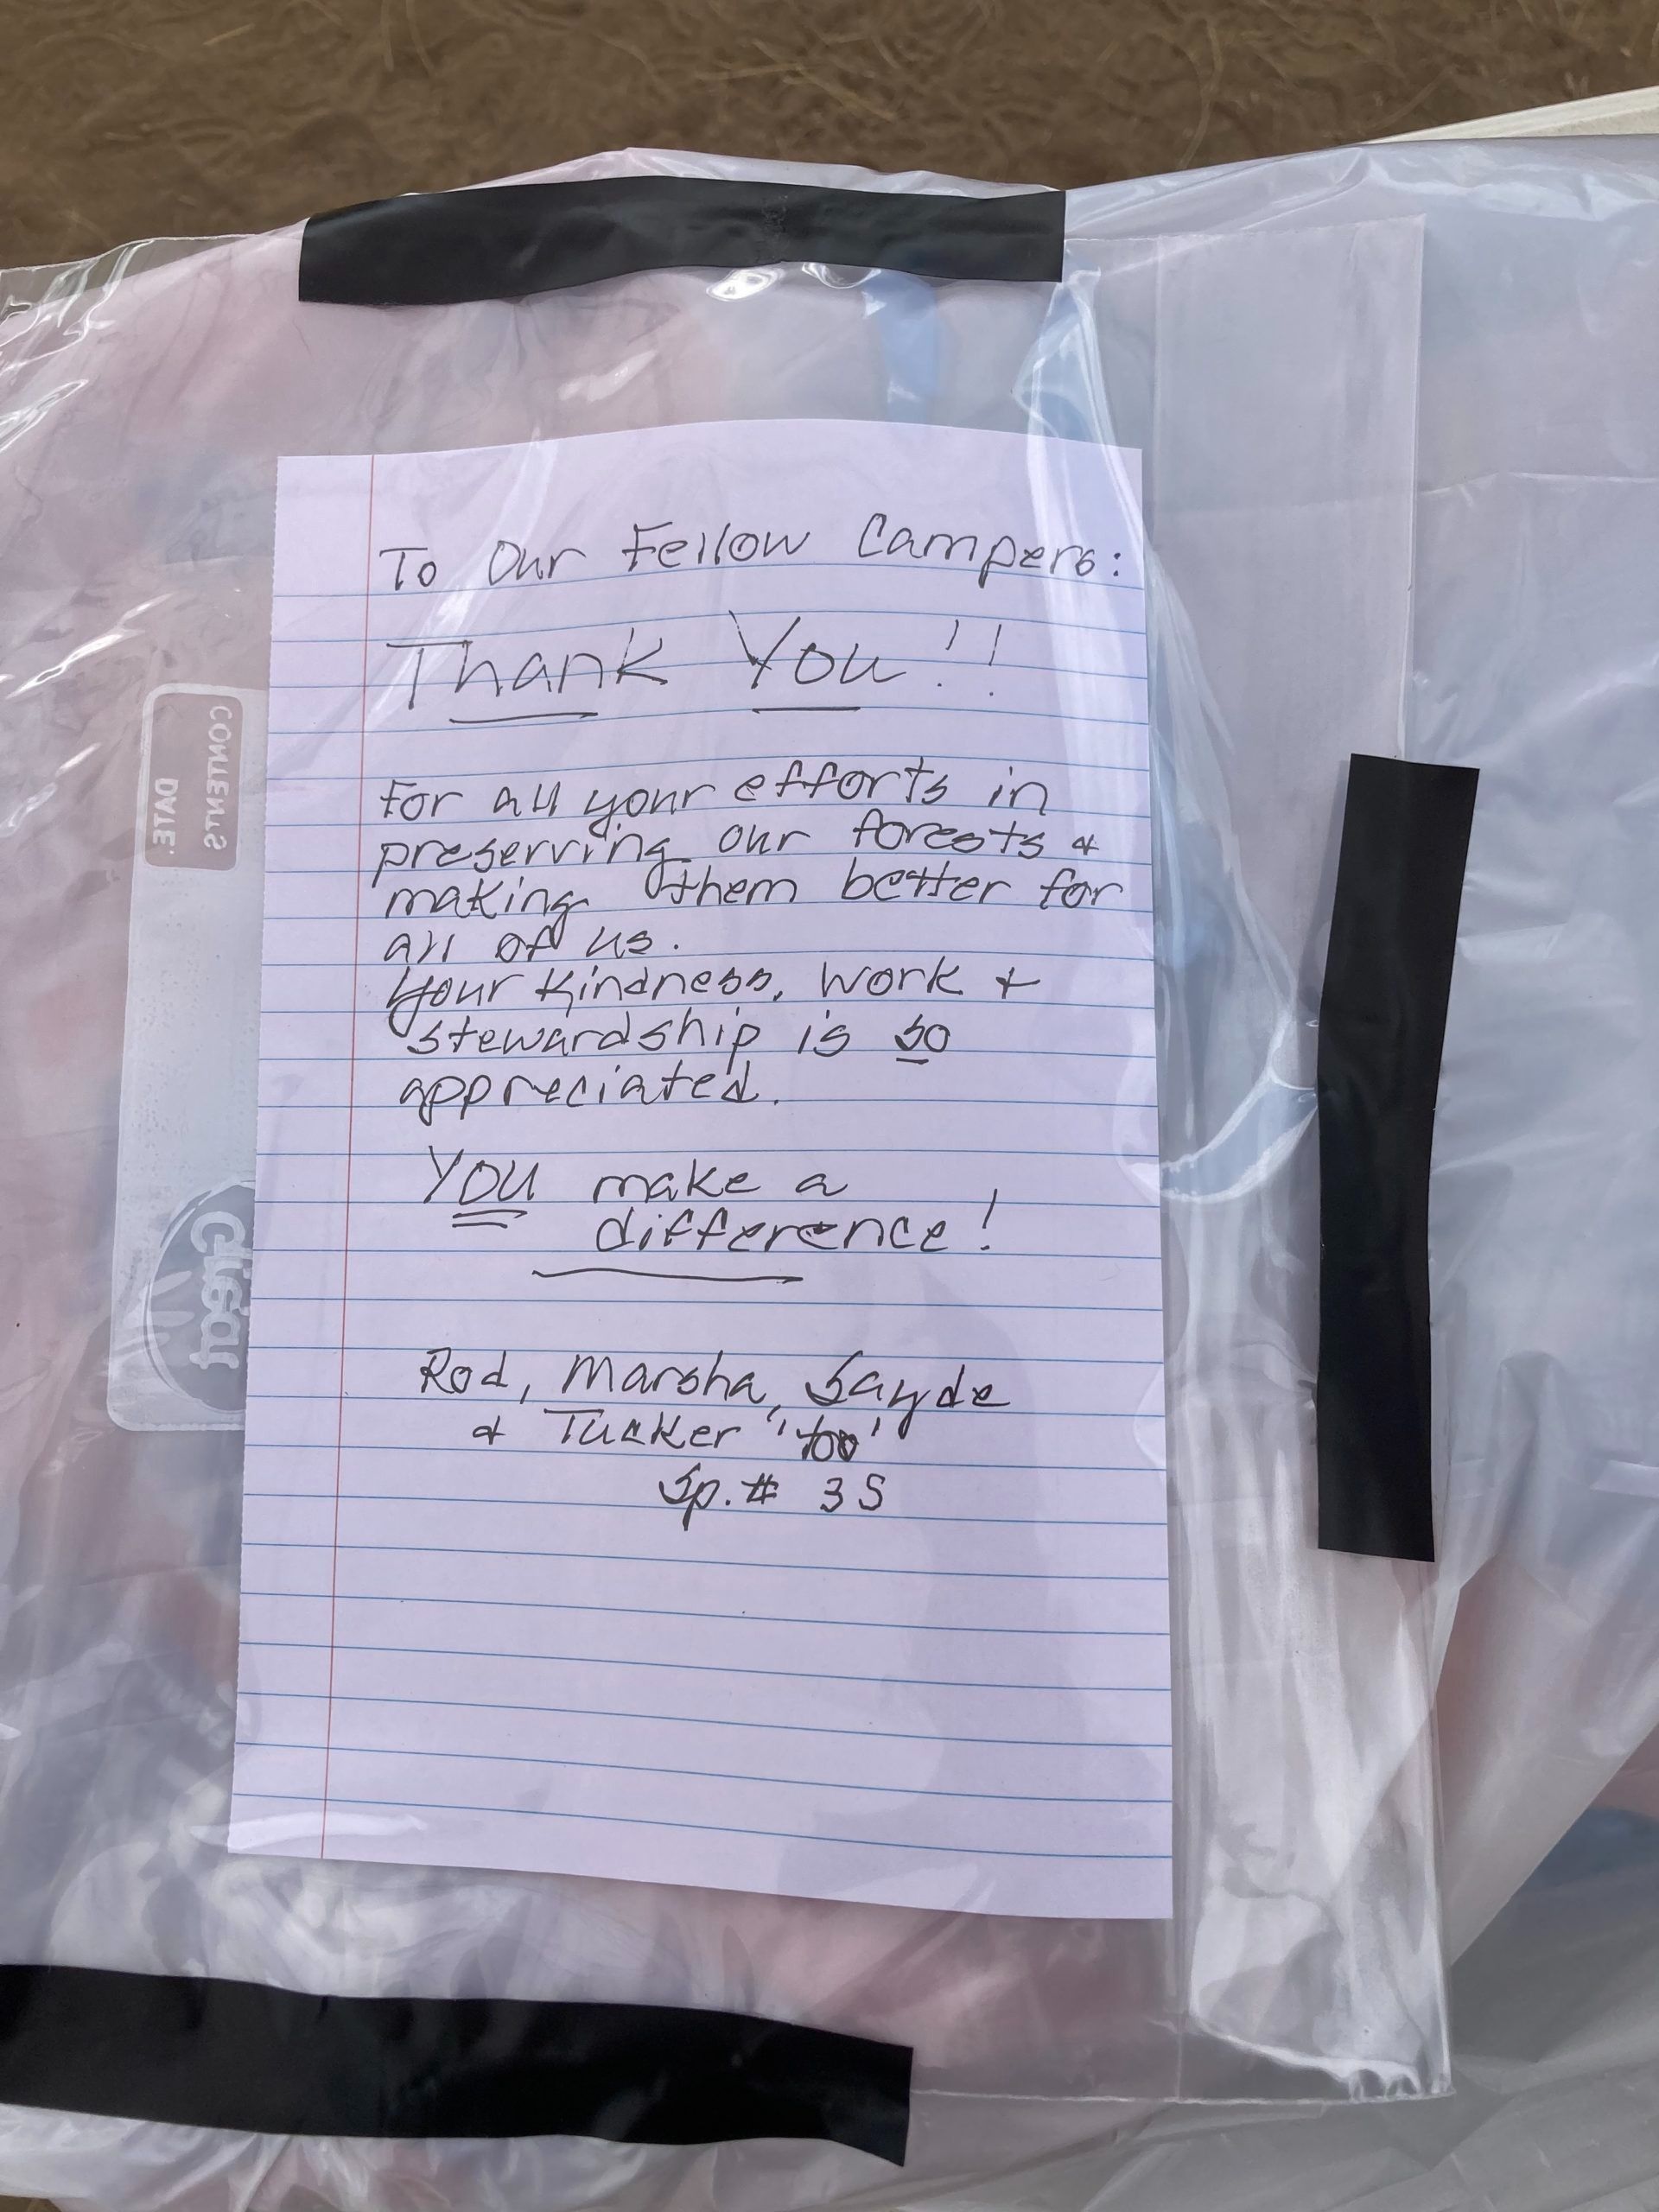 To Our Fellow Campers:
Thank You!!
For all your efforts in
preserving our forests &
making them better for
all of us.
Your kindness, work +
stewardship is so
appreciated.
YOU make a
difference!
Rod, Marsha, Sayde
& Tucker 'too'
Sp. # 3S
CONTENTS
DATE: